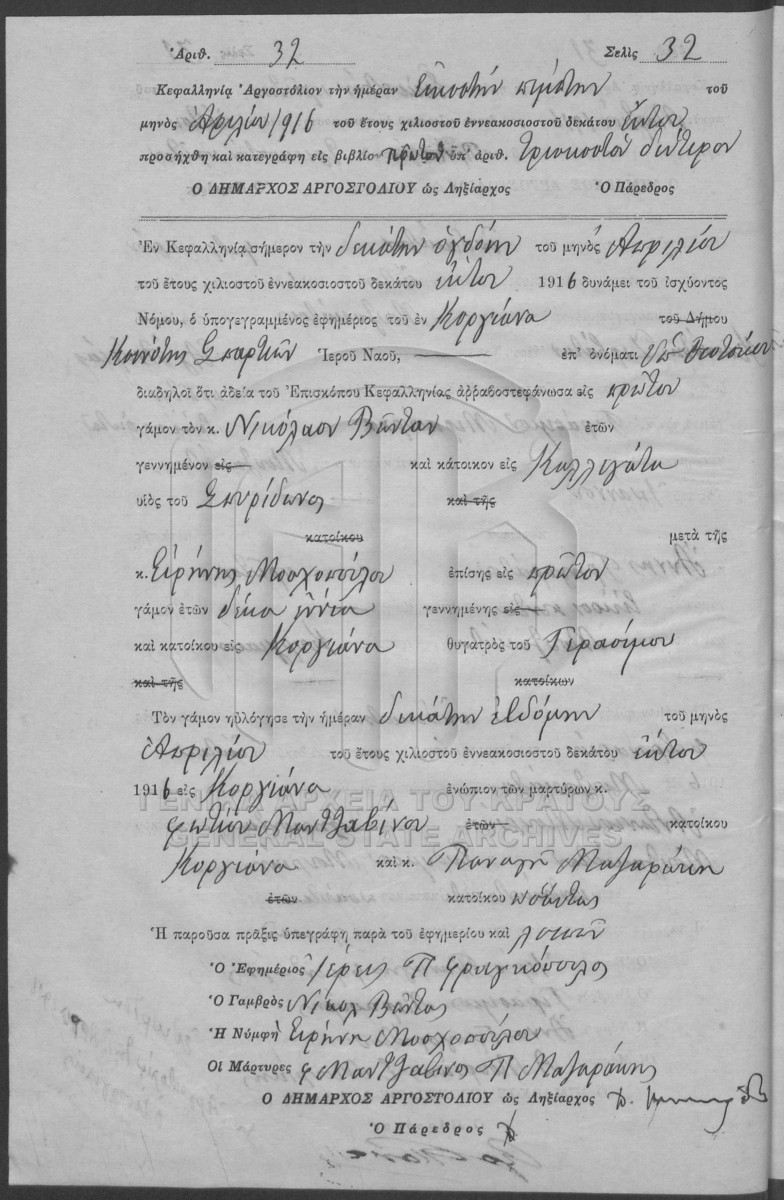 Ἀριθ. 32 Σελὶς 32
Κεφαλληνίᾳ Ἀργοστόλιον τὴν ἡμέραν Εἰκοστὴν πέμπτην τοῦ
μηνὸς Ἀπριλίου 1916 τοῦ ἔτους χιλιοστοῦ ἐννεακοσιοστοῦ δεκάτου ἕκτου
προσήχθη καὶ κατεγράφη εἰς βιβλίον πρῶτον ὑπ' ἀριθ. τριακοστὸν δεύτερον
Ο ΔΗΜΑΡΧΟΣ ΑΡΓΟΣΤΟΛΙΟΥ ὡς Ληξίαρχος Ὁ Πάρεδρος
Ἐν Κεφαλληνίᾳ σήμερον τὴν δεκάτην ὀγδόην τοῦ μηνὸς Ἀπριλίου
τοῦ ἔτους χιλιοστοῦ ἐννεακοσιοστοῦ δεκάτου ἕκτου 1916 δυνάμει τοῦ ἰσχύοντος
Νόμου, ὁ ὑπογεγραμμένος ἐφημέριος τοῦ ἐν Κοργιάνα τοῦ Δήμου
Κοινότης Σπαρτιῶν Ἱεροῦ Ναοῦ, ἐπ' ὀνόματι Ὑπ. Θεοτόκου
διαδηλοῖ ὅτι ἀδείᾳ τοῦ Ἐπισκόπου Κεφαλληνίας ἀρραβοστεφάνωσα εἰς πρῶτον
γάμον τὸν κ. Νικόλαον Βῶνταν ἐτῶν
γεννημένον εἰς καὶ κάτοικον εἰς Καλλιγάτα
υἱὸς τοῦ Σπυρίδωνος καὶ τῆς
κατοίκου μετὰ τῆς
κ. Εἰρήνης Μοσχοπούλου ἐπίσης εἰς πρῶτον
γάμον ἐτῶν δέκα ἐννέα γεννημένης εἰς
καὶ κατοίκου εἰς Κοργιάνα θυγατρὸς τοῦ Γερασίμου
καὶ τῆς κατοίκων
Τὸν γάμον ηὐλόγησε τὴν ἡμέραν δεκάτην ἑβδόμην τοῦ μηνὸς
Ἀπριλίου τοῦ ἔτους χιλιοστοῦ ἐννεακοσιοστοῦ δεκάτου ἕκτου
1916 εἰς Κοργιάνα ἐνώπιον τῶν μαρτύρων κ.
ΓΕΝΙΚΑ ΑΡΧΕΙΑ ΤΟΥ ΚΡΑΤΟΥΣ
φωτίου Μαντζαβίνου ἐτῶν κατοίκου
GENERAL STATE ARCHIVES
Κοργιάνα καὶ κ. Παναγῆ Μαζαράκη
ἐτῶν κατοίκου ὡσαύτως
Ἡ παροῦσα πρᾶξις ὑπεγράφη παρὰ τοῦ ἐφημερίου καὶ λοιπῶν
Ὁ Ἐφημέριος Ἱερεὺς Π Φραγκόπουλος
Ὁ Γαμβρὸς Νικολ Βῶντας
Ἡ Νύμφη Εἰρήνη Μοσχοπούλου
Οἱ Μάρτυρες φ Μαντζαβίνος Π Μαζαράκης
Ο ΔΗΜΑΡΧΟΣ ΑΡΓΟΣΤΟΛΙΟΥ ὡς Ληξίαρχος
Ὁ Πάρεδρος